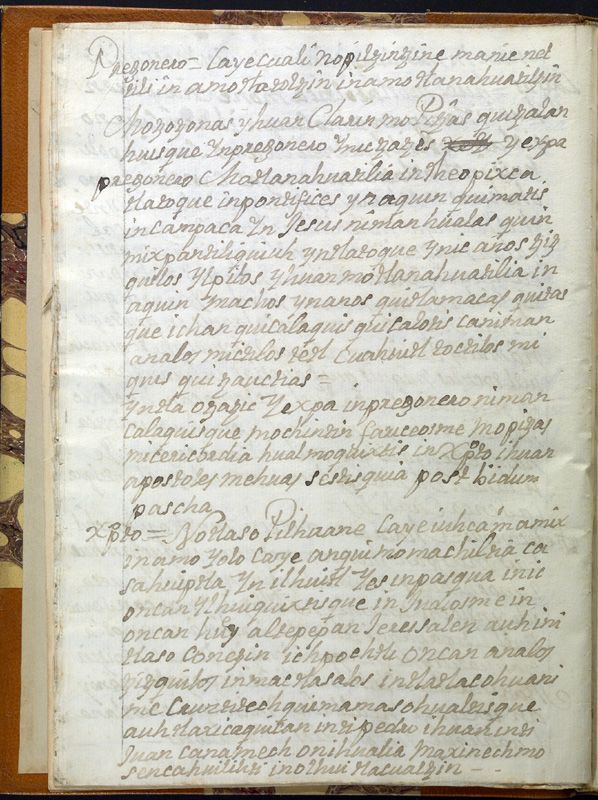 Pregonero = Ca ye cuali nopiltzintzine manic nel
tili in amotlatoltzin in amotlanahuatiltzin
Motzotzonas yhuan Clarin mo Pitzas quitzatzan
huisque Ynpregonero Ynic tzatzis y expa
pregonero Motlanahuatilia in theopixca
tlatoque in pontifices yn aquin quimatis
in campaca Yn Jesus niman hualas quin
mixpantiliquiuh yn tlatoque Ynic años tziz
quilos Ylpilos Yhuan motlanahuatilia in
taquin Ymachos yn anos quitlamacas quitas
que ichan quicalaquis quicaltis ca niman
analos mictilos tetl Cuahuitl toctilos mi
quis quitzauctias =
Yn tla otzatzic Yexpa in pregonero niman
calaquisque mochintin fauceosme mopitzas
micericordia hualmoquixtis in Xpto ihuan
apostoles mehuas scitis quia post biduum
pascha
Xpto = Notlaso Pilhuane Ca ye iuhca in amix
in amo Yolo ca ye anquimomachiltia ca
sa huiptla Yn ilhuitl Yes in pasqua inic
oncan Ylhuiquixtisque in Judiosme in
oncan huey altepepan Jerusalen auh ini
tlaso Conetzin ichpochtli oncan analos
tzizquilos inmactlasalos in tlatlacohuani
mic Cruztitech quimamasohualtisque
auh tla xicaquican in ti pedro ihuan in ti
Juan ca namech onihualia maxinechmo
sencahuilihti in othuitlacualtzin - -